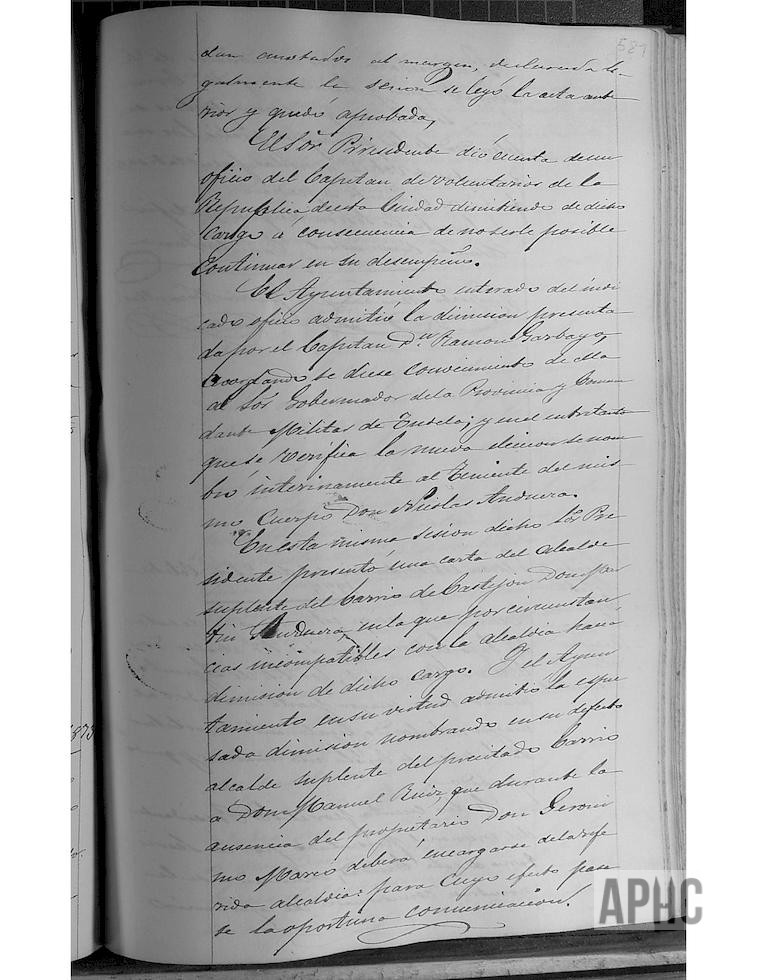 581
dan anotados al margen, declarada le-
galmente la sesion se leyó la acta ante
rior y quedó aprobada,
El Sor Presidente dió cuenta de un
oficio del Capitan de voluntarios de la
Republica, de esta Ciudad dimitiendo de dicho
cargo á consecuencia de no serle posible
continuar en su desempeño.
El Ayuntamiento enterado del indi
cado oficio admitió la dimision presenta
da por el Capitan Dn Ramon Garbayo,
acordando se diese conocimiento de ella
al Sor Gobernador de la Provincia y Coman
dante Militar de Tudela; y en el entretanto
que se verifica la nueva eleccion se nom
bró interinamente al Teniente del mis-
mo Cuerpo Don Nicolas Anduera.
En esta misma sesion dicho Sor Pre
sidente presentó una carta del alcalde
suplente del barrio de Castejon Don
tin Anduera, en la que por circunstan
cias incompatibles con la alcaldia hacia
dimision de dicho cargo. Y el Ayun
tamiento en su virtud admitió la espre
sada dimision nombrando en su defecto
alcalde suplente del precitado barrio
a Don Manuel Ruiz que durante la
ausencia del propietario Don Geroni
mo Marco deberá encargarse de la refe
rida alcaldia: para cuyo efecto pase
se la oportuna comunicacion.
1873
APHC